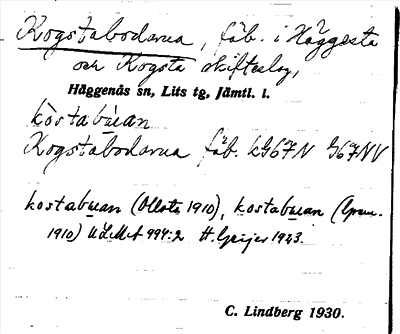 Kogstabodarna, fäb. i Häggesta
och Kogsta skifteslag,
Häggenås sn, Lits tg, Jämtl. l.
kòstabu̱an
Kogstabodarna fäb. kG67N G67NV
kostabu̱an (Ollsta 1910), kostabu̱an (Gren-
1910) ULMA 994:2 H. Geijer 1943.
C. Lindberg 1930.